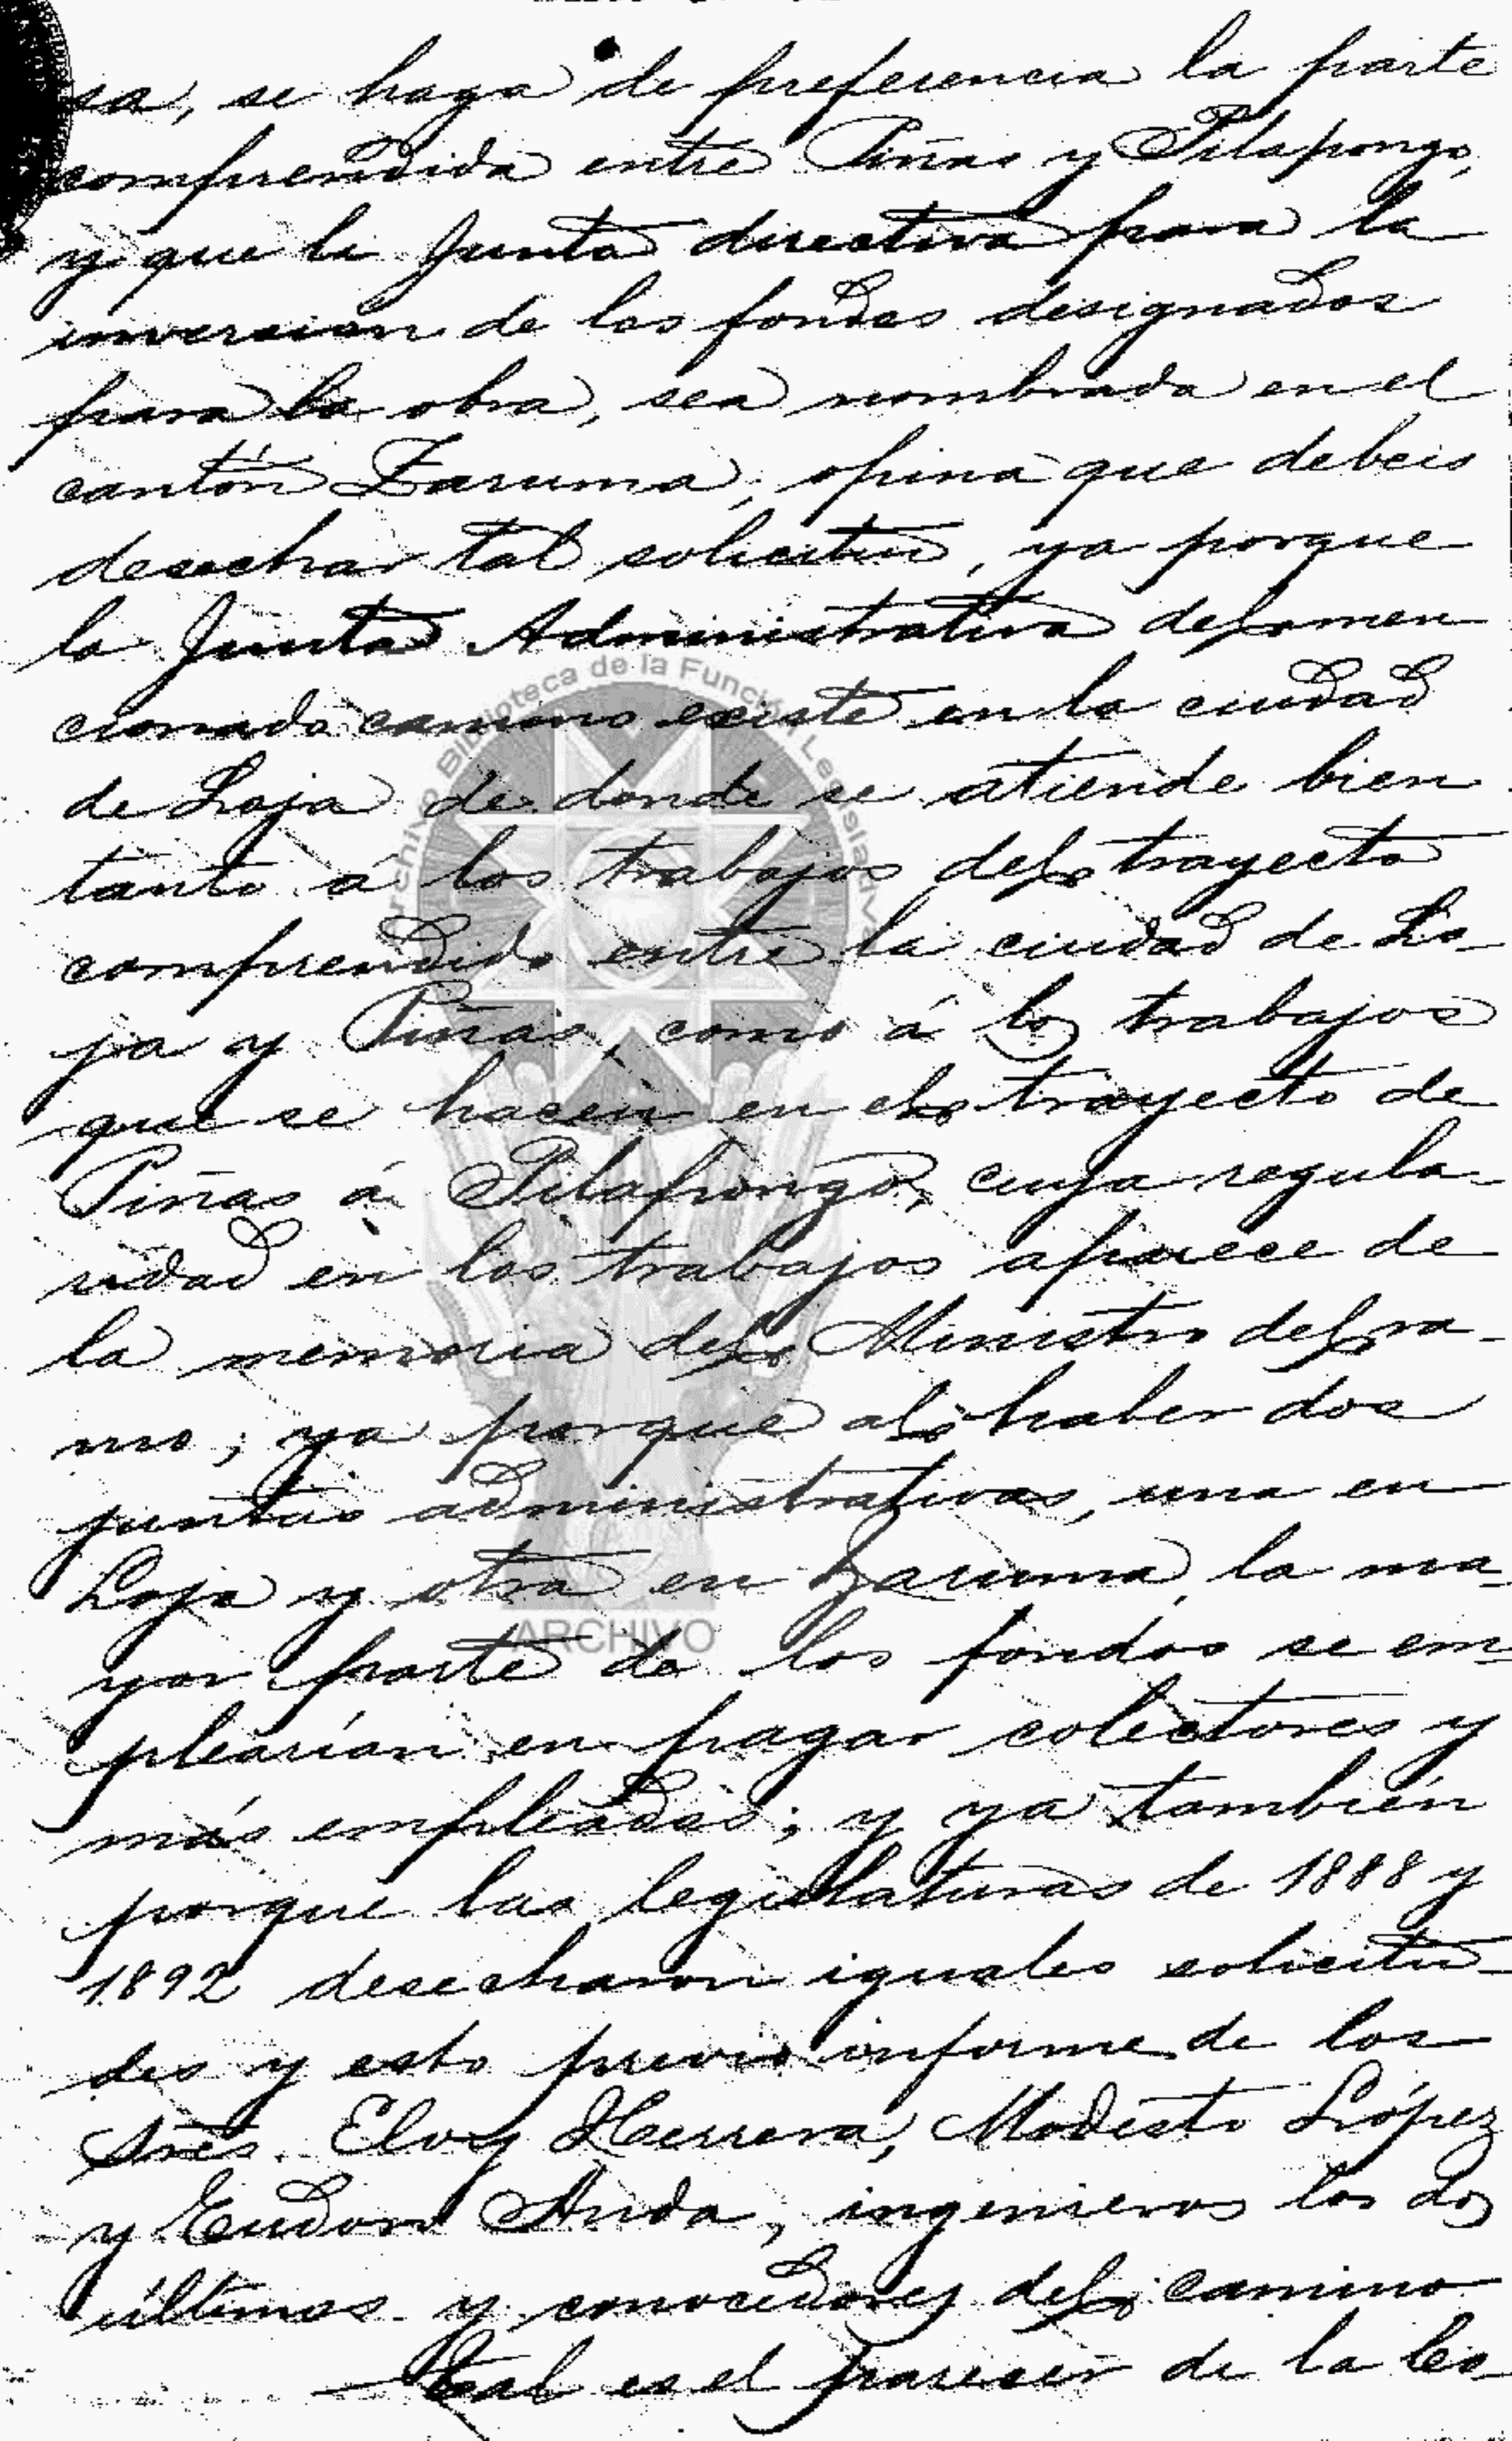 sa, se haga de preferencia la parte
comprendida entre Piñas y Pilapongo,
y que la Junta directiva para la
inversion de los fondos designados
para la obra, sea nombrada en el
cantón Zaruma; opina que debeis
desechar tal solicitud, ya porque
la Junta Administrativa del men
cionado camino existe en la ciudad
de Loja de donde se atiende bien
tanto á los trabajos del trayecto
comprendido entre la ciudad de Lo-
ja y Piñas, como á los trabajos
que se hacen en el trayecto de
Piñas á Pilapongo, cuya regula-
ridad en los trabajos aparece de
la memoria del Ministro del ra-
mo; ya porque al haber dos
juntas administrativas, una en
Loja y otra en Zaruma, la ma-
yor parte de los fondos se em-
plearían en pagar colectores y
más empleados; y ya también
porque las legislaturas de 1888 y
1892 desecharon iguales solicitu-
des y esto previo informe de los
Sres. Eloy Herrera, Modesto López
y Eudoro Anda, ingenieros los dos
últimos y conocedores del camino
Tal es el parecer de la Co-
Archivo Biblioteca de la Función Legislativa
ARCHIVO